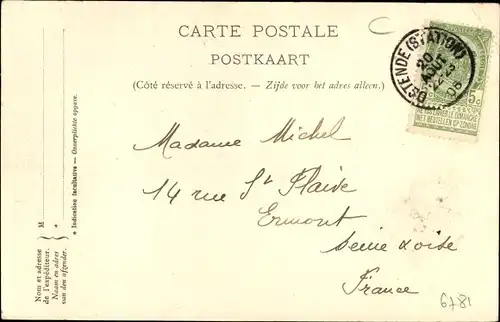 CARTE POSTALE
POSTKAART
(Côté réservé à l'adresse. — Zijde voor het adres alleen.)
OSTENDE (STATION)
20
AOUT
22-23
08
5c
NE PAS LIVRER LE DIMANCHE
NIET BESTELLEN OP ZONDAG
Madame Michel
14 rue St Flaive
Ermont
Seine & oise
France
6781
Nom et adresse
de l'expéditeur.
Naam en adres
van den afzender.
M
*
* Indication facultative — Onverplichte opgave.